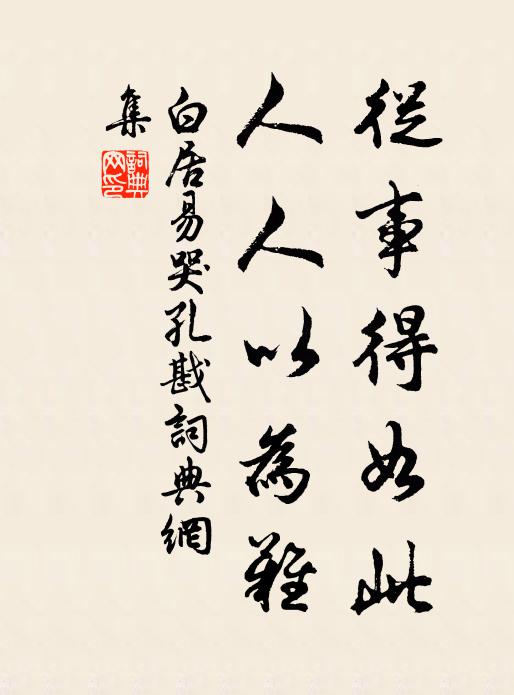 從事得如此
人人以為難
白居易哭孔戡詞典網
集
詞典網印